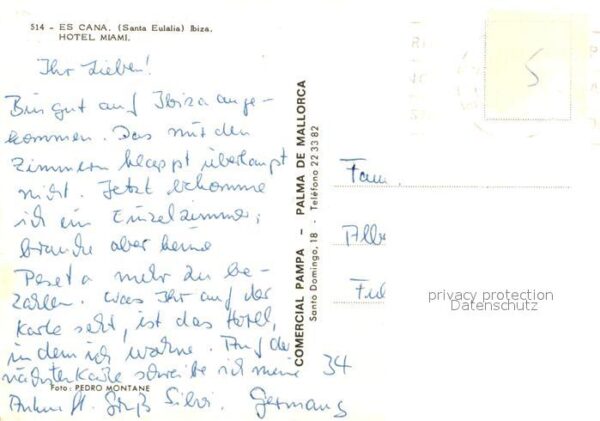 514 - ES CANA. (Santa Eulalia) Ibiza.
HOTEL MIAMI.
Ihr Lieben!
Bin gut auf Ibiza ange-
kommen. Das mit den
Zimmern klappt überhaupt
nicht. Jetzt bekomme
ich ein Einzelzimmer,
brauche aber keine
Peseta mehr zu be-
zahlen. Was Ihr auf der
Karte seht, ist das Hotel,
in dem ich wohne. Auf der
nächsten Karte schreibe ich meine
Foto: PEDRO MONTANE
Ankunft. Gruß Silvi.
COMERCIAL PAMPA - PALMA DE MALLORCA
Santo Domingo, 18 - Teléfono 22 33 82
S
Fam.
Albe
Ful
privacy protection
Datenschutz
34
Germany